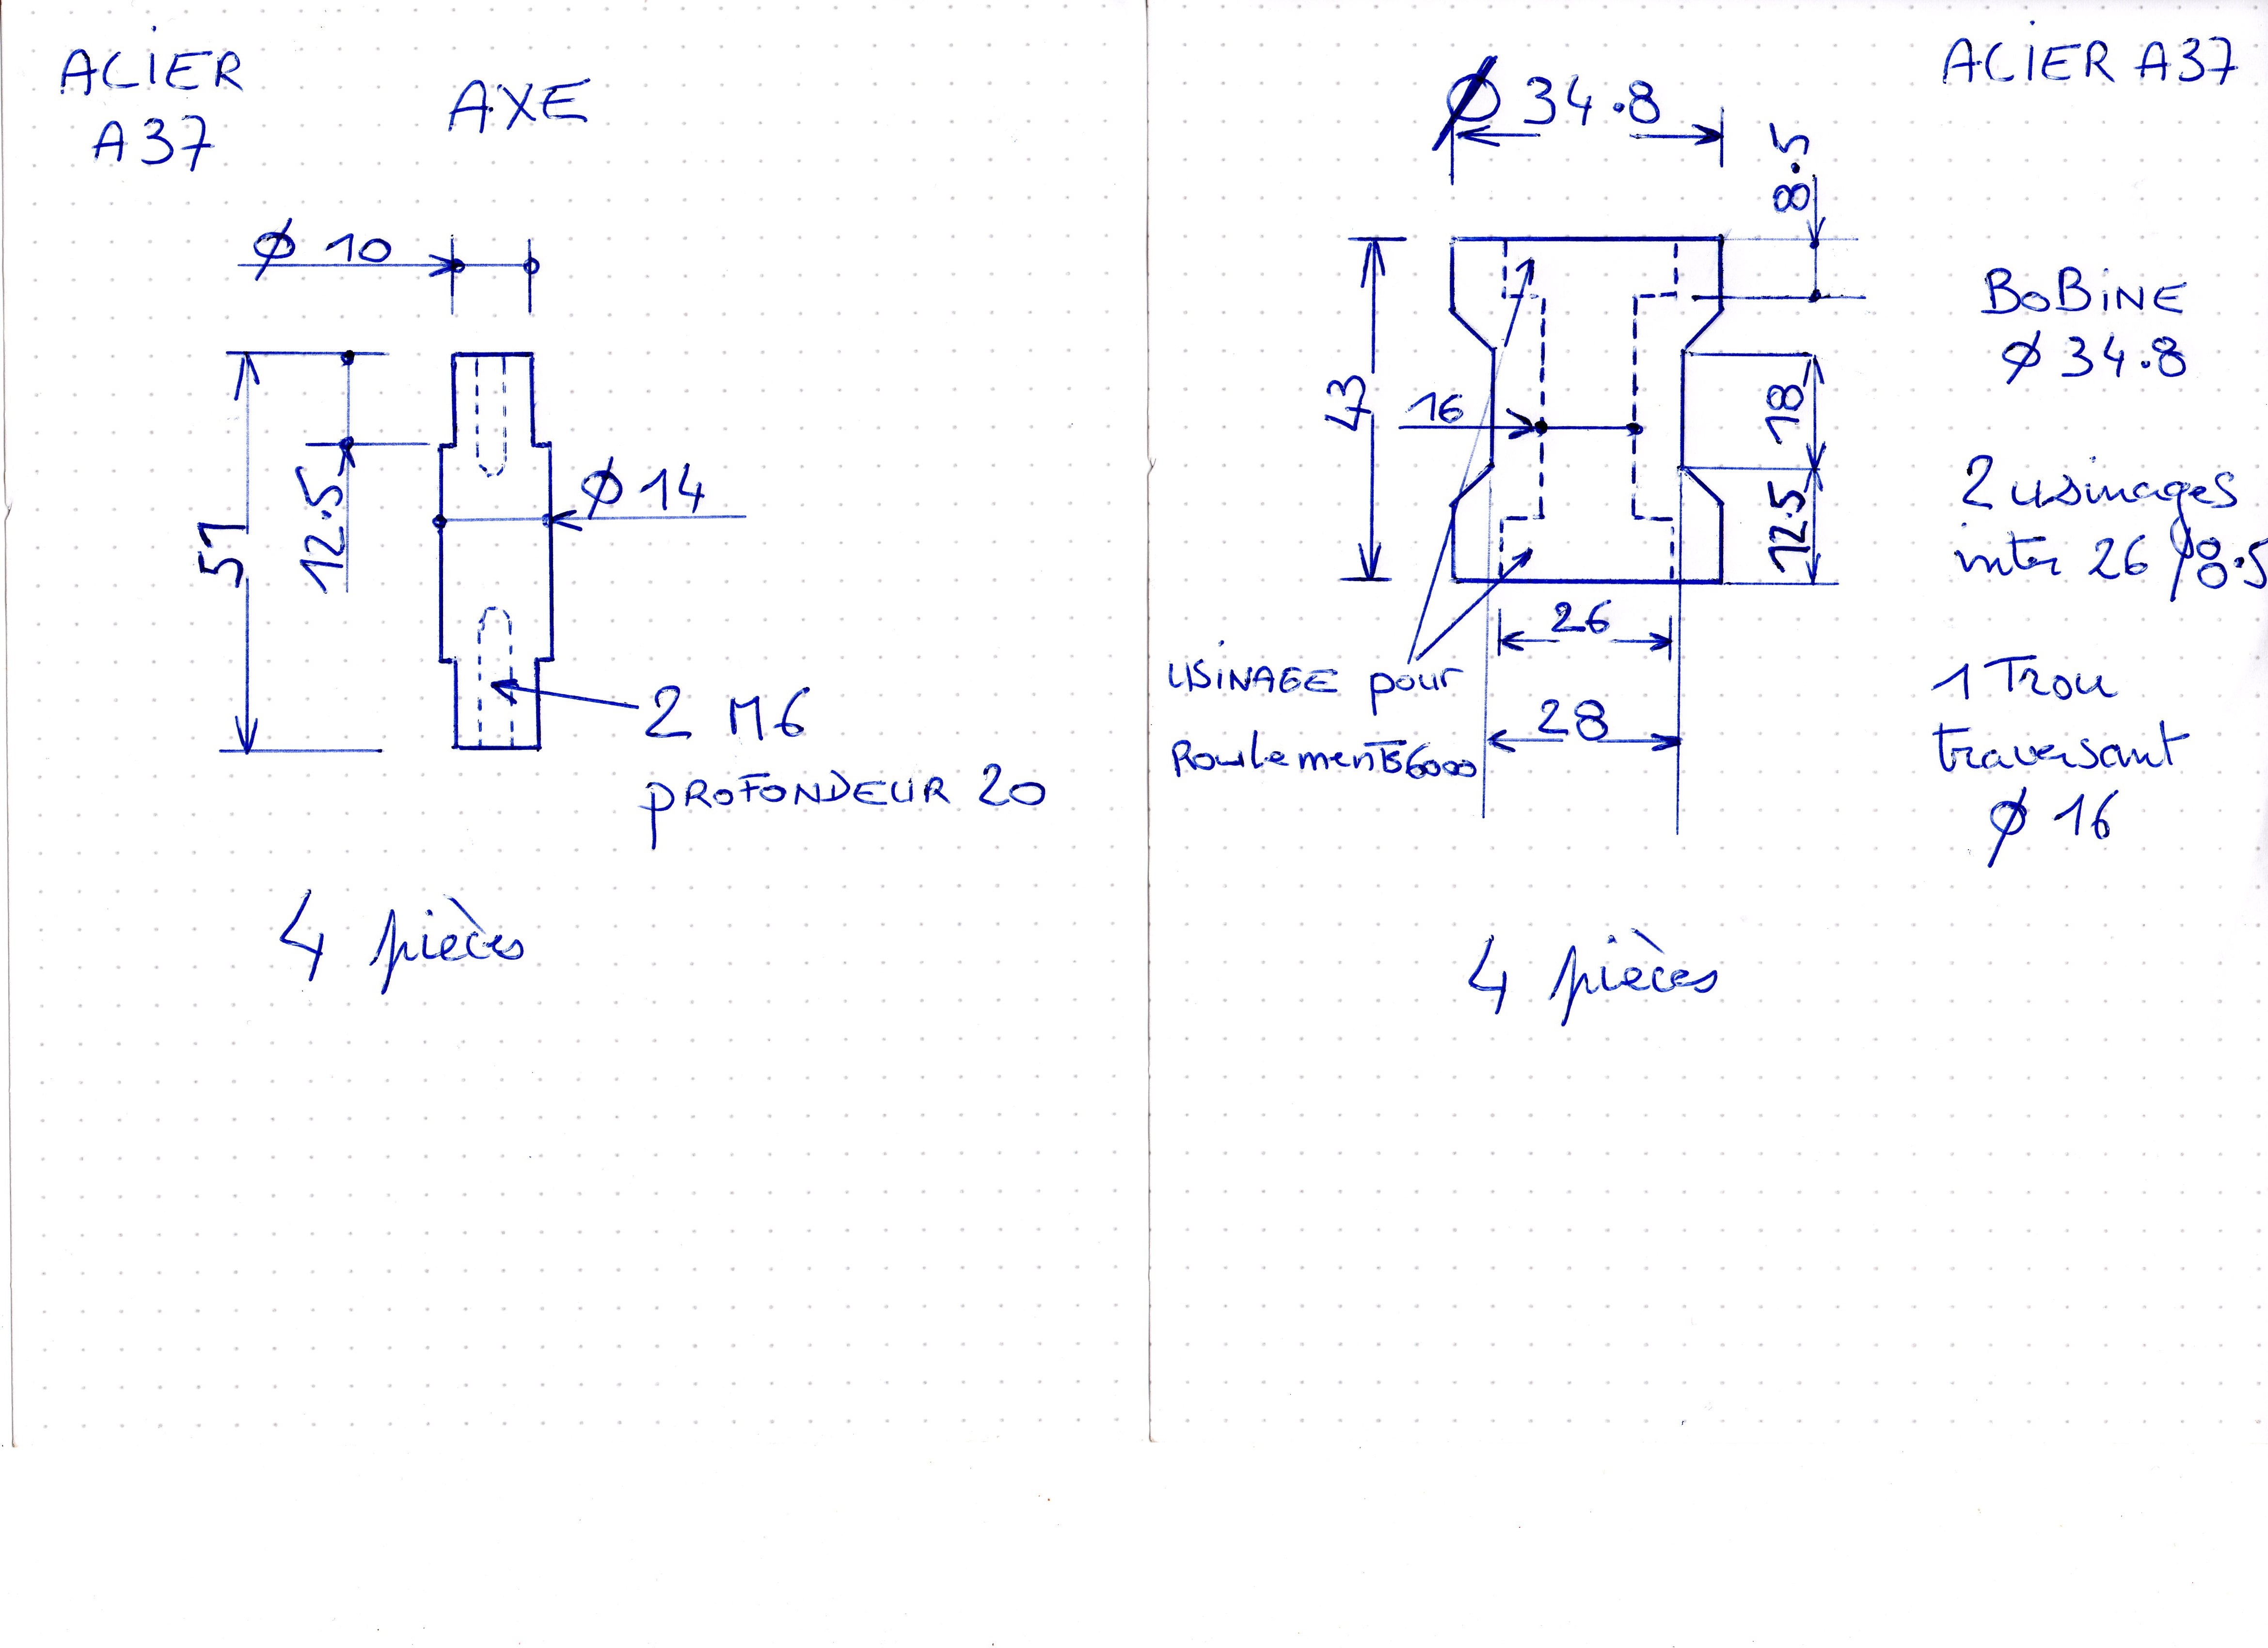 ACiER
A37
AXE
Ø 10
51
12.5
Ø 14
2 M6
PROFONDEUR 20
4 pièces
ACiER A37
Ø 34.8
8.5
43
16
18
12.5
26
28
USiNAGE pour
Roulements 6000
BoBiNE
Ø 34.8
2 usinages
inter 26
8.5
1 Trou
traversant
Ø 16
4 pièces